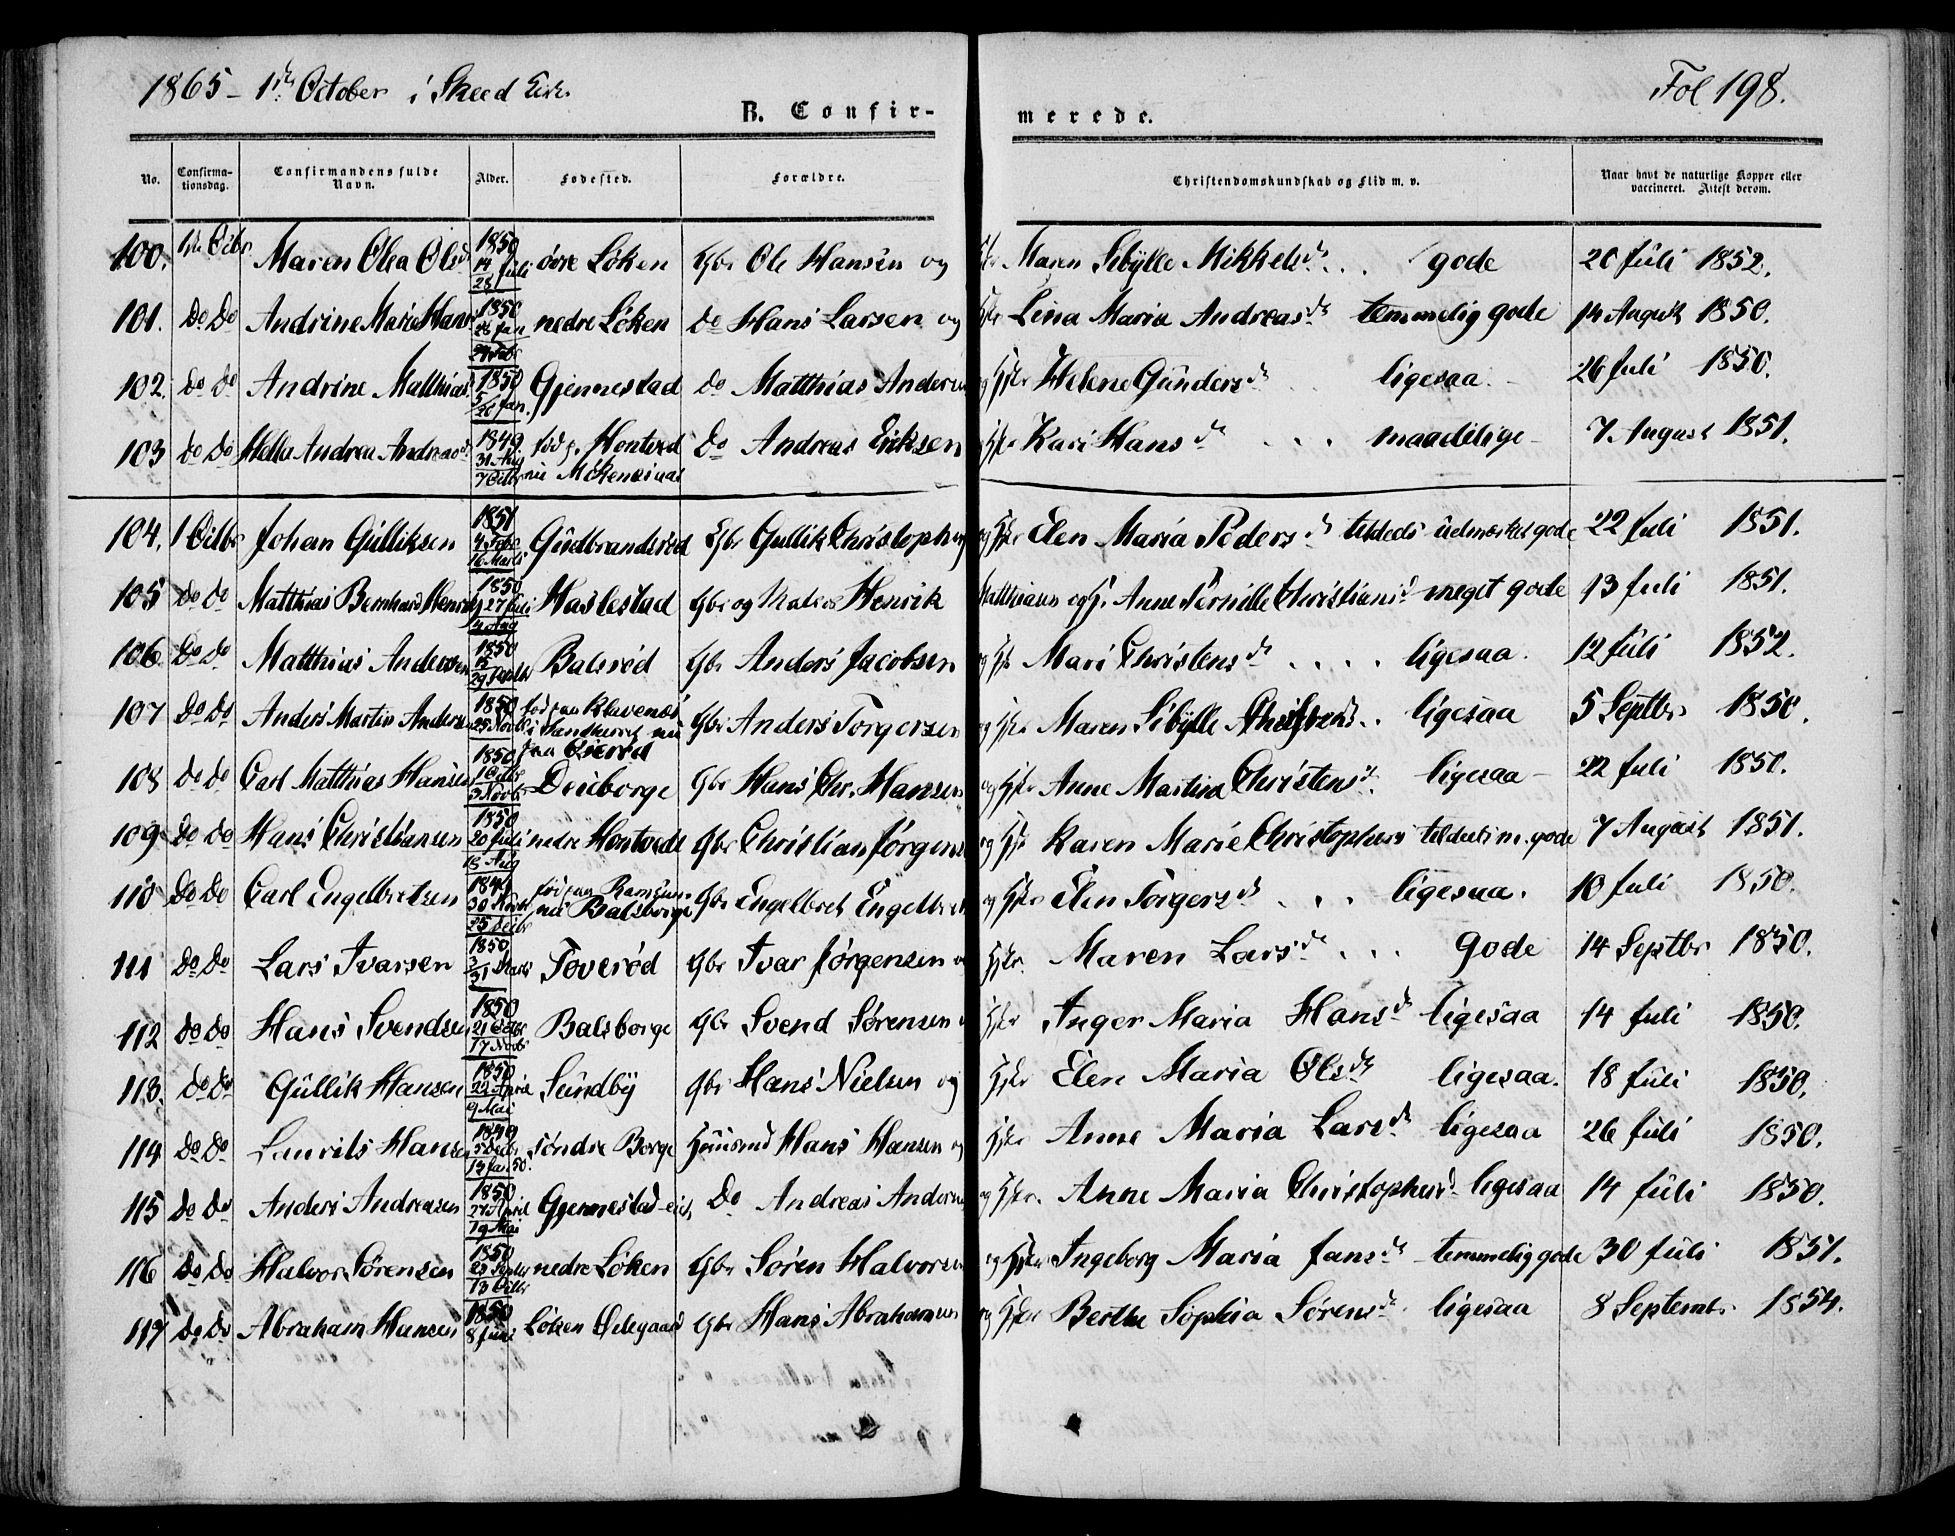 1865 - 1ste October i Skeed Kirke.
Fol 198.
B. Confir-
merede.
No.
Confirma-
tionsdag.
Confirmandens fulde
Navn.
Alder.
Fødested.
Forældre.
Christendomskundskab og Flid m. v.
Naar havt de naturlige Kopper eller
vaccineret. Attest derom.
100. 1ste Octbr Maren Olea Olsd 1850 14 Juli 28 øvre Løken Gbr Ole Hansen og Maren Sibylle Mikkelsd. gode 20 Juli 1852.
101. Do Do Andrine Marie Hans 1850 26 Jan 24 Febr nedre Løken Do Hans Larsen og Lina Maria Andreasd temmelig gode 14 August 1850.
102. Do Do Andrine Matthias 1850 5/26 Jan. Gjennestad Do Matthias Anders og Hstr Helene Gundersd ligesaa. 26 Juli 1850.
103 Do Do Helle Andrea Andreasd 1849 31 Aug 7 Octbr fød p. Hontved nu Do Andreas Eriksen og Hstr Kari Hansd maadelige 7 August 1851.
104. 1 Octbr Johan Gulliksen 1851 4 Febr 16 Marts Gudbrandsrød Gbr Gullik Christoph og Hstr Elen Maria Pedersd tildeels udmærket gode 22 Juli 1851.
105 Do Do Matthias Bernhard Henrik 1850 27 Juli 4 Aug Haslestad Gbr og Henrik Matthiasen og H. Anne Pernille Christiansd meget gode 13 Juli 1851.
106. Do Do Matthias Andersen 1850 29 Septbr Balsrød Gbr Anders Jacobsen og Hstr Mari Christensd ligesaa. 12 Juli 1852.
107 Do Do Anders Martin Anders 1850 25 Novbr fød paa Klavenes i Sandeherred nu paa Gbr Anders Torgersen og Hstr Maren Sibylle ligesaa 5 Septbr 1850.
108 Do Do Carl Matthias Hansen 1850 1 Octbr 3 Novbr Døviborge Gbr Hans Chr. Hansen og Hstr Anne Martina Christensd. ligesaa 22 Juli 1851.
109 Do Do Hans Christiansen 1850 20 Juli 18 Aug nedre Hontvede Gbr Christian Jørgens og Hstr Karen Marie Christophers tildeels m. gode 7 August 1851.
110 Do Do Carl Engelbretsen 1849 30 Novbr 25 Decbr fød paa Ramsum nu Balsborge Gbr Engelbret Engelbret og Hstr Elen Torgersd ligesaa. 10 Juli 1850.
111 Do Do Lars Ivarsen 1850 3/31 Marts Toverød Gbr Ivar Jørgensen Hstr Maren Larsd gode 14 Septbr 1850.
112 Do Do Hans Svendsen 1850 21 Octbr 17 Novbr Balsborge Gbr Svend Sørensen Hstr Inger Maria Hansd ligesaa 14 Juli 1850.
113. Do Do Gullik Hansen 1850 22 April 9 Mai Sundby Gbr Hans Nielsen og Hstr Elen Maria Olsd ligesaa. 18 Juli 1850.
114 Do Do Laurits Hansen 1849 5 Decbr 12 Jan 50. søndre Borge Huusmd Hans Hansen og Hstr Anne Maria Larsd ligesaa 26 Juli 1850.
115 Do Do Anders Andreasen 1850 27 April 19 Mai Gjennestad-eie Do Andreas Anders og Hstr Anne Maria Christophersd ligesaa 14 Juli 1850.
116 Do Do Halvor Sørensen 1850 23 Septbr 13 Octbr nedre Løken Gbr Søren Halvorsen og Hstr Ingeborg Maria Jansd temmelig gode 30 Juli 1851.
117 Do Do Abraham Hansen 1850 8 Juni Løken Ødegaard Gbr Hans Abrahamsen og Hstr Berthe Sophia Sørensd ligesaa 8 Septembr 1854.